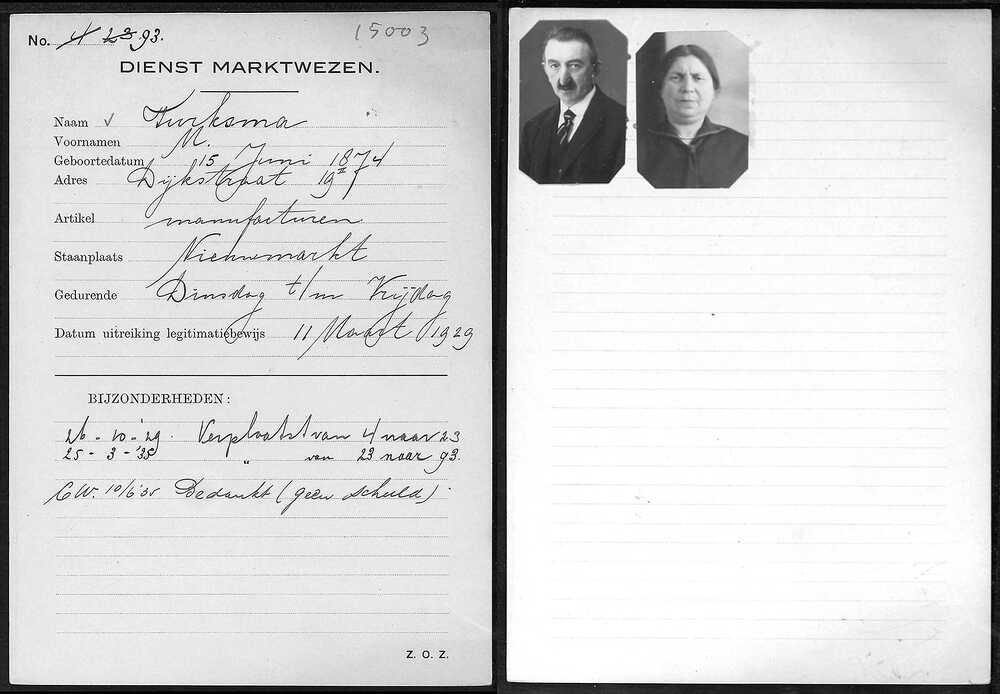 No. 4 23 93.
15003
DIENST MARKTWEZEN.
Naam √ Turksma
Voornamen M.
Geboortedatum 15 Juni 1874
Adres Dijkstraat 19 II
Artikel manufacturen
Staanplaats Nieuwmarkt
Gedurende Dinsdag t/m Vrijdag
Datum uitreiking legitimatiebewijs 11 Maart 1929
BIJZONDERHEDEN:
26-10-'29. Verplaatst van 4 naar 23
25-3-'35 " van 23 naar 93.
C.W. 10/6 '35 Bedankt (geen schuld)
Z. O. Z.